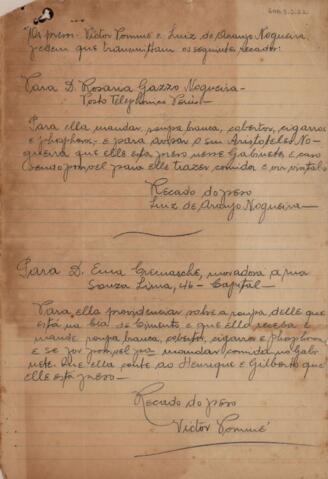 Os presos: Victor Pommé e Luiz de Araujo Nogueira,
pedem que transmittam os seguintes recados:
Para D. Rosaria Gazzo Nogueira -
Posto Telephonico
Para ella mandar, roupa branca, cobertor, cigarros
e phosphoros, e para avisar o snr Aristoteles No-
gueira que elle está preso nesse Gabinete e caso
sendo possivel para elle trazer comida e vir
Recado do preso
Luiz de Araujo Nogueira -
Para D. Ema Cremasche, moradora a rua
Souza Lima, 46 - Capital -
Para ella providenciar sobre a roupa delle que
está na Cia de Cimento e que ella receba e
mande roupa branca, cobertor, cigarros e phosphoros
e se for possivel mandar comida no Gabi-
nete. Que ella conte ao Henrique e Gilberto que
elle está preso -
Recado do preso
Victor Pommé